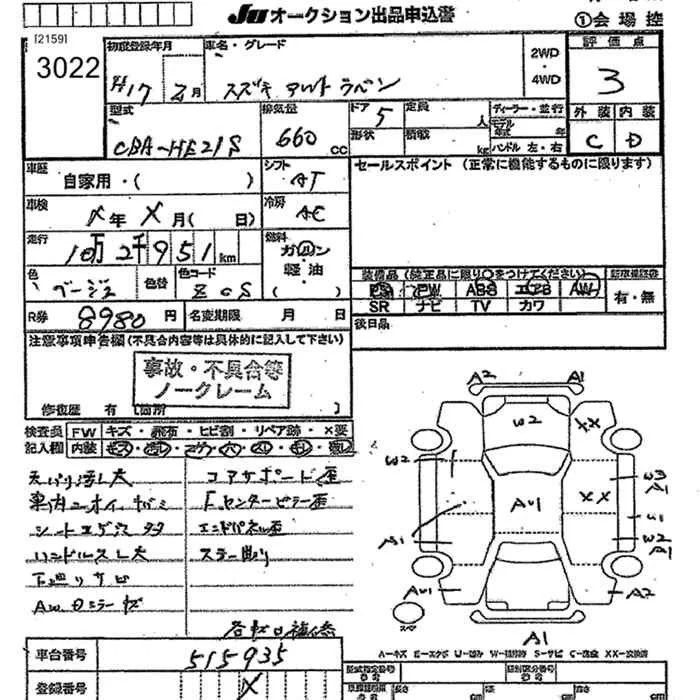 JU オークション出品申込書
①会場控
[2159]
3022
初度登録年月
H17 年 2月
車名・グレード
スズキ アルト ラパン
2WD
・
4WD
評価点
3
型式
CBA-HE21S
排気量
660 cc
ドア
5
定員
人
形状
積載
kg
ディーラー・並行
モデル年式 年
ハンドル 左・右
外装
内装
C
D
車歴
自家用・( )
シフト
AT
セールスポイント (正常に機能するものに限ります)
車検
年 X月( 日)
冷房
AC
走行
10万2千951km
燃料
ガソリン
軽油
( )
色
ベージュ
色替
色コード
ZCS
装備品 (純正品に限り○をつけてください)
PS PW ABS エアB AW
SR ナビ TV カワ
有・無
R券
8980円
名変期限 月 日
後日品
注意事項申告欄 (不具合内容等は具体的に記入して下さい)
事故・不具合等
ノークレーム
修復歴 有 (箇所 )
検査員
記入欄
FW
キズ・飛石・ヒビ割・リペア跡・×要
内装
車内ニオイ
コアサポート歪
センターピラー歪
シートコゲ穴
エンドパネル歪
ハンドルスレ大
下廻りサビ
車台番号
515935
登録番号
X
A2
A1
W2
XX
W2
W3
A1
AU1
XX
U1
A1
W2
A1
AU1
A2
A1
A-キズ E-エクボ U-凹み W-補修跡 S-サビ C-腐食 XX-交換済